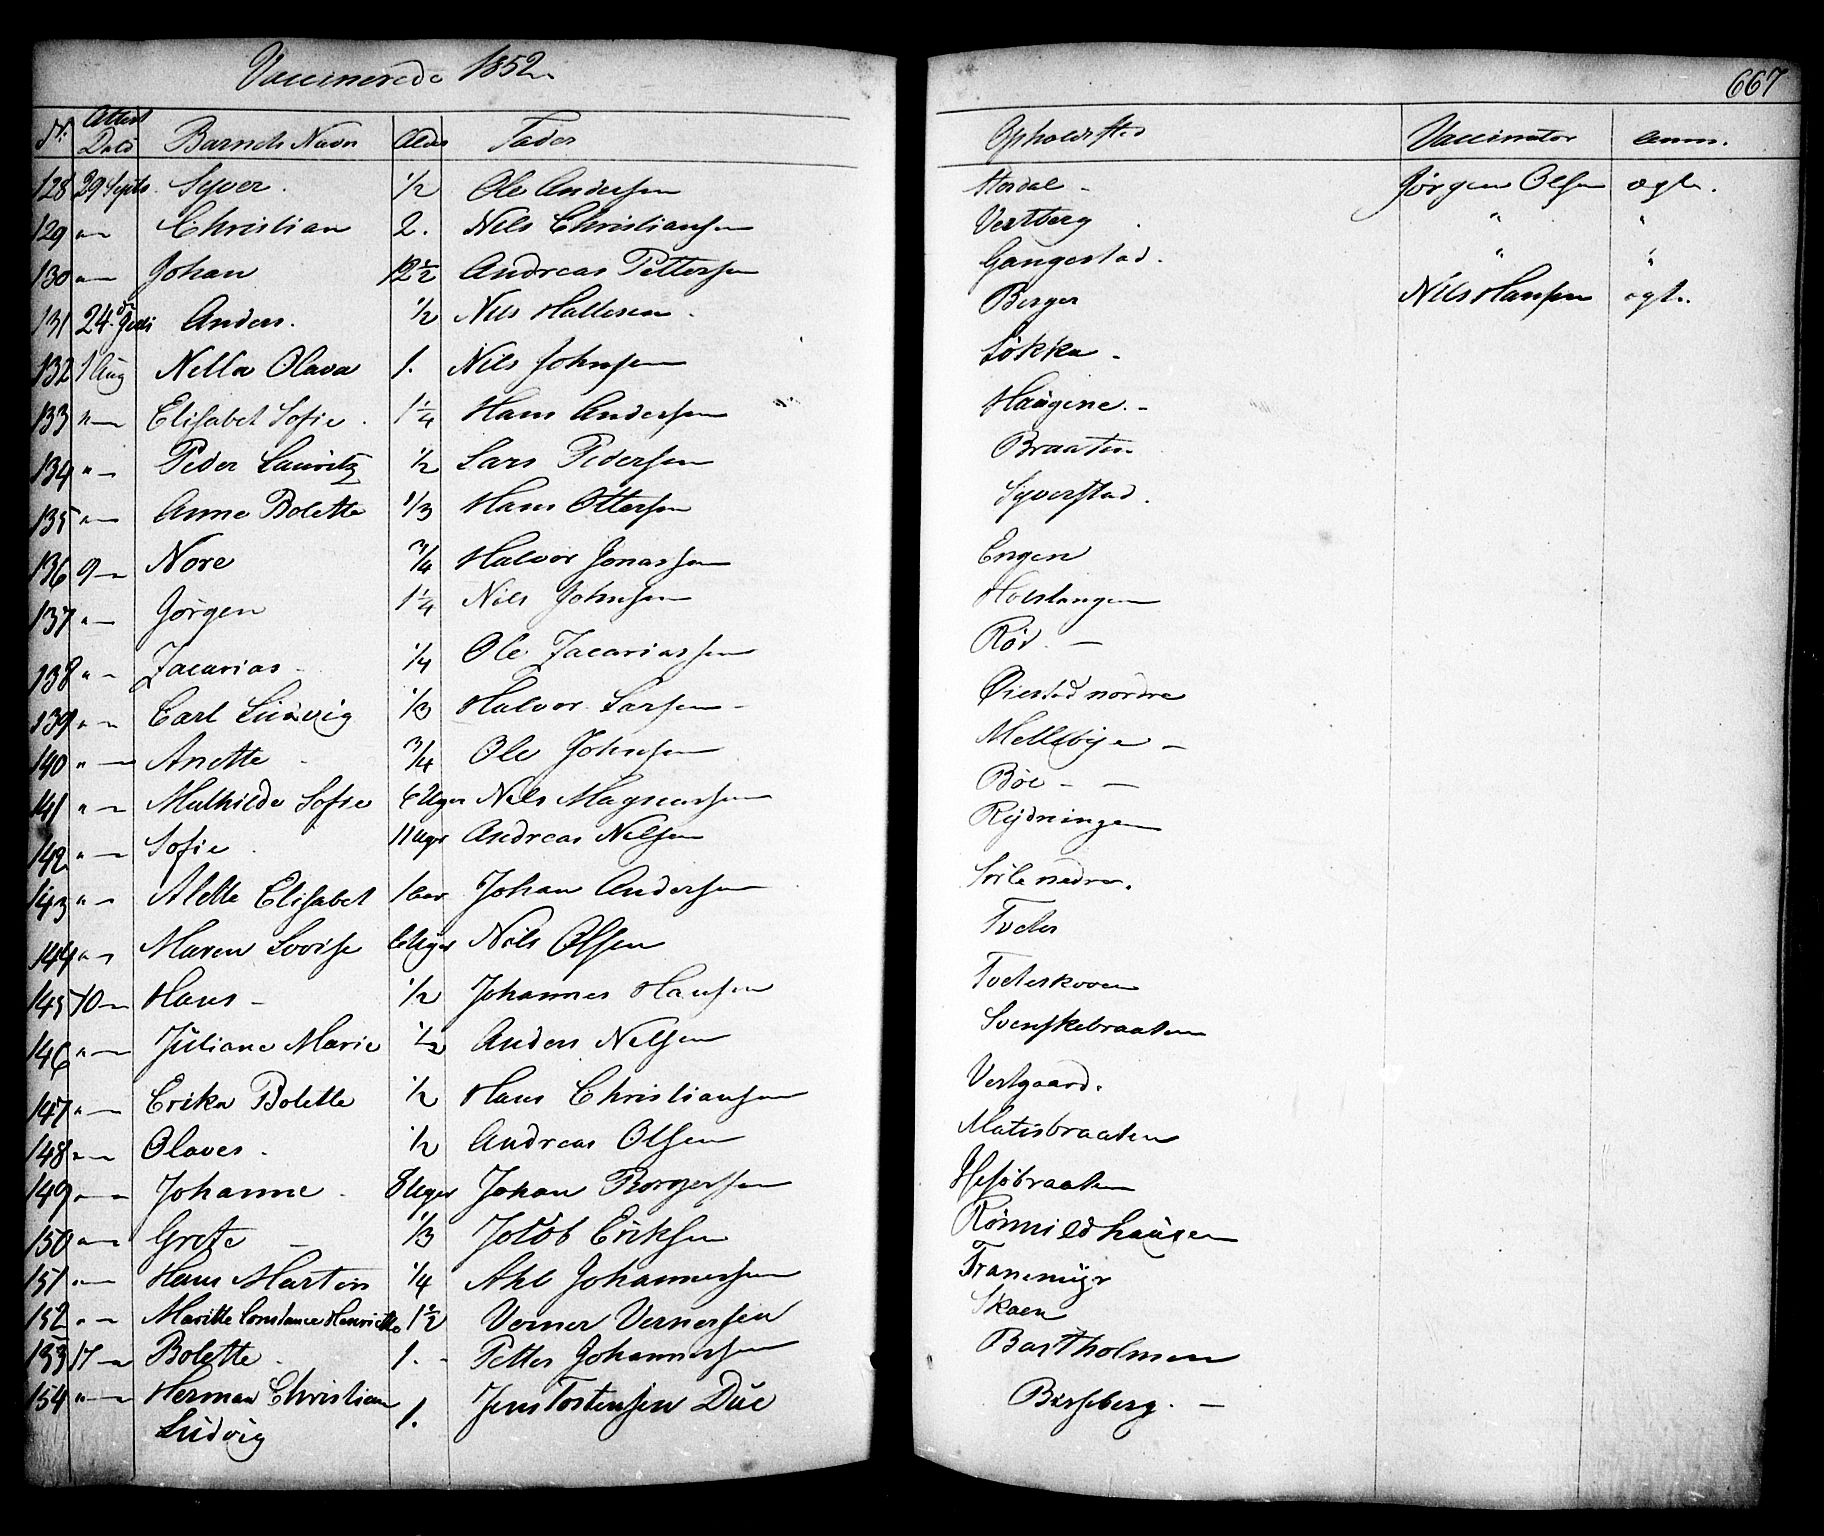 Vaccinerede 1852
667
Nr. Attest Dato Barnets Navn Alder Fader Opholdssted Vaccinator Anm.
128 29 Septb. Syver. 1/2 Ole Andersen Hordal - Jörgen Olsen ægte.
129 " — Christian 2. Nils Christiansen Vestberg " "
130 " — Johan 12 1/2 Andreas Pettersen Gangestad. " "
131 24 Anders. 1/2 Nils Hallesen. Berger Nils Hansen ægte.
132 1 Aug Nella Olava 1. Nils Johnsen Løkka -
133 " — Elisabet Sofie. 1 1/4 Hans Andersen Haugene. -
134 " — Peder Lauritz 1/2 Lars Pedersen Braaten
135 " — Anne Bolette 1/3 Hans Ottersen Syverstad.
136 9 — Nore 3/4 Halvor Jonassen Engen
137 " — Jörgen 1 1/4 Nils Johnsen Holstangen
138 " — Zacarias - 1/4 Ole Zacariassen Rød. —
139 " — Carl Ludvig 1/3 Halvor Larsen - Øiestad nordre
140 " — Anette - 3/4 Ole Johnsen Mellebye -
141 " — Mathilde Sofie 6 Uger Nils Magnussen Böe - —
142 " — Sofie. 11 Uger Andreas Nilsen Rydningen
143 " — Alette Elisabet 1 aar Johan Andersen Sörle nedre.
144 " — Maren Lovise 6 Uger Nils Olsen Tveter
145 10 — Hans - 1/2 Johannes Hansen Tveterskoven
146 " — Juliane Marie 1/2 Anders Nilsen Svenskebraaten
147 " — Erika Bolette 1/2 Hans Christiansen Vestgaard.
148 " — Olaves - 1/2 Andreas Olsen Matisbraaten
149 " — Johanne. 8 Uger Johan Borgersen
150 " — Grete — 1/3 Jacob Eriksen Römmildhaugen
151 " — Hans Martin 1/4 Ahl Johannessen Tranemyr
152 " — Maritte Constance Henriette 1 1/2 Verner Vernersen Skaen
153 17 — Bolette - 1. - Petter Johannessen Bartholmen
154 " — Herman Christian 1. Jens Tostensen Due Birseberg. —
Ludvig